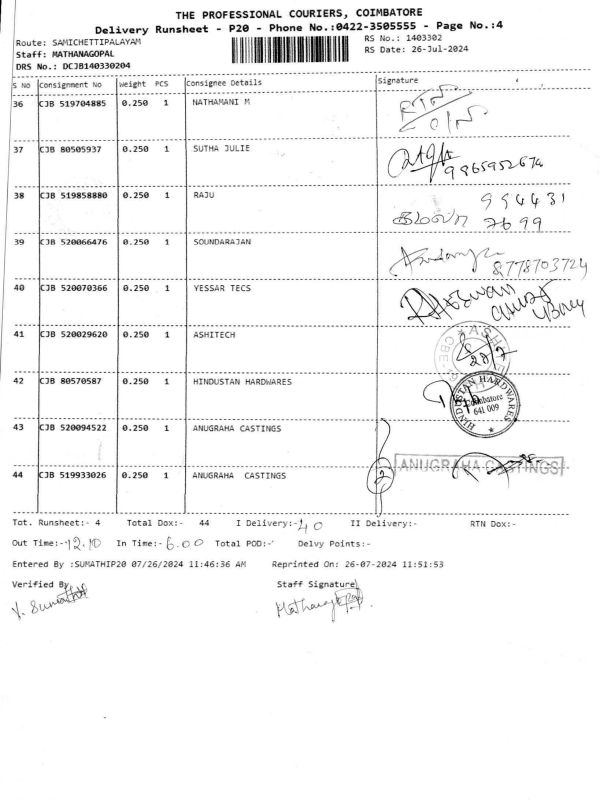 THE PROFESSIONAL COURIERS, COIMBATORE
Delivery Runsheet - P20 - Phone No.:0422-3505555 - Page No.:4
Route: SAMICHETTIPALAYAM RS No.: 1403302
Staff: MATHANAGOPAL RS Date: 26-Jul-2024
DRS No.: DCJB140330204
S No Consignment No Weight PCS Consignee Details Signature
36 CJB 519704885 0.250 1 NATHAMANI M
37 CJB 80505937 0.250 1 SUTHA JULIE
9865952674
38 CJB 519858880 0.250 1 RAJU 994431
கமலா 7699
39 CJB 520066476 0.250 1 SOUNDARAJAN
8778703724
40 CJB 520070366 0.250 1 YESSAR TECS
41 CJB 520029620 0.250 1 ASHITECH
42 CJB 80570587 0.250 1 HINDUSTAN HARDWARES
HINDUSTAN HARDWARES
Coimbatore
641 009
43 CJB 520094522 0.250 1 ANUGRAHA CASTINGS
ANUGRAHA CASTINGS
44 CJB 519933026 0.250 1 ANUGRAHA CASTINGS 2
Tot. Runsheet:- 4 Total Dox:- 44 I Delivery:- 40 II Delivery:- RTN Dox:-
Out Time:- 12.10 In Time:- 6.00 Total POD:- Delvy Points:-
Entered By :SUMATHIP20 07/26/2024 11:46:36 AM Reprinted On: 26-07-2024 11:51:53
Verified By Staff Signature